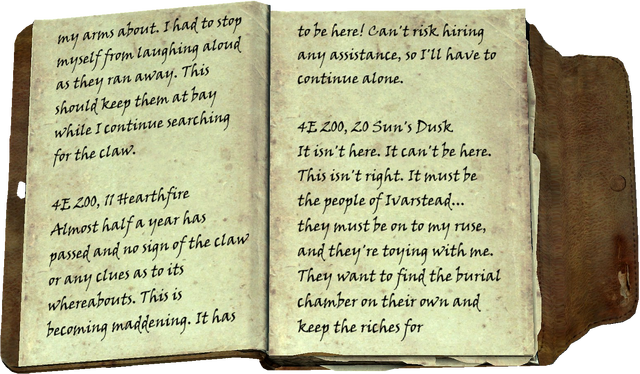 my arms about. I had to stop
myself from laughing aloud
as they ran away. This
should keep them at bay
while I continue searching
for the claw.

4E 200, 11 Hearthfire
Almost half a year has
passed and no sign of the claw
or any clues as to its
whereabouts. This is
becoming maddening. It has

to be here! Can't risk hiring
any assistance, so I'll have to
continue alone.

4E 200, 20 Sun's Dusk
It isn't here. It can't be here.
This isn't right. It must be
the people of Ivarstead...
they must be on to my ruse,
and they're toying with me.
They want to find the burial
chamber on their own and
keep the riches for